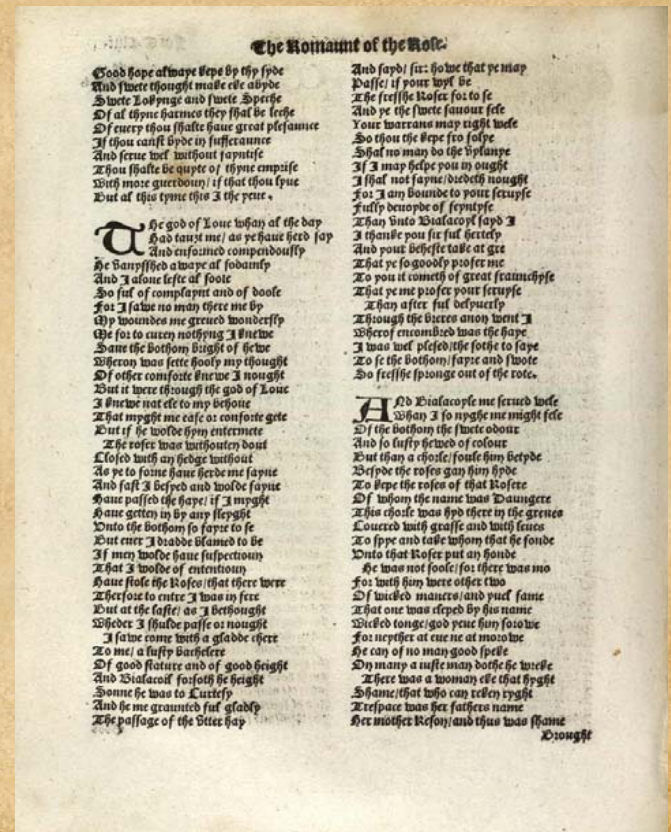 The Romaunt of the Rose.
Good hope alwaye kepe by thy syde
And swete thought make eke abyde
Swete Lokynge and swete Speche
Of al thyne harmes they shal be leche
Of euery thou shalte haue great plesaunce
If thou canst byde in sufferaunce
And serue wel without fayntise
Thou shalte be quyte of thyne emprise
With more guerdoun/ if that thou lyue
But al this tyme this I the yeue.
The god of Loue whan al the day
Had tauzt me/ as ye haue herd say
And enformed compendously
He vanysshed awaye al sodainly
And I alone lefte al soole
So ful of complaynt and of doole
For I sawe no man there me by
My woundes me greued wonderfly
Me for to curen nothyng I knewe
Saue the bothom bright of hewe
Wheron was sette hooly my thought
Of other comforte knewe I nought
But it were through the god of Loue
I knewe nat els to my behoue
That myght me ease or conforte gete
But if he wolde hym entermete
The roser was withouten dout
Closed with an hedge without
As ye to forne haue herde me sayne
And fast I besyed and wolde fayne
Haue passed the haye/ if I myght
Haue getten in by any sleyght
Vnto the bothom so fayre to se
But euer I dradde blamed to be
If men wolde haue suspectioun
That I wolde of ententioun
Haue stole the Roses/ that there were
Therfore to entre I was in fere
But at the laste/ as I bethought
Wheder I shulde passe or nought
I sawe come with a gladde chere
To me/ a lusty bachelere
Of good stature and of good height
And Bialacoil forsoth he height
Sonne he was to Curtesy
And he me graunted ful gladly
The passage of the vtter hay
And sayd/ sir: howe that ye may
Passe/ if your wyl be
The fresshe Roser for to se
And ye the swete sauour fele
Your warrans may right wele
So thou the kepe fro folye
Shal no man do the vylanye
If I may helpe you in ought
I shal not fayne/ dredeth nought
For I am bounde to your seruyse
Fully deuoyde of feyntyse
Than vnto Bialacoyl sayd I
I thanke you sir ful hertely
And your beheste take at gre
That ye so goodly profer me
To you it cometh of great fraunchyse
That ye me profer your seruyse
Than after ful delyuerly
Through the breres anon went I
Wherof encombred was the haye
I was wel plesed/ the sothe to saye
To se the bothom/ fayre and swote
So fresshe spronge out of the rote.
ANd Bialacoyle me serued wele
Whan I so nyghe me might fele
Of the bothom the swete odour
And so lusty hewed of colour
But than a chorle/ foule him betyde
Besyde the roses gan him hyde
To kepe the roses of that Rosere
Of whom the name was Daungere
This chorle was hyd there in the greues
Couered with grasse and with leues
To spye and take whom that he fonde
Vnto that Roser put an honde
He was not soole/ for there was mo
For with him were other two
Of wicked maners/ and yuel fame
That one was cleped by his name
Wicked tonge/ god yeue him sorowe
For neyther at eue ne at morowe
He can of no man good speke
On many a iuste man dothe he wreke
There was a woman eke that hyght
Shame/ that who can reken ryght
Trespace was her fathers name
Her mother Reson/ and thus was shame
Brought